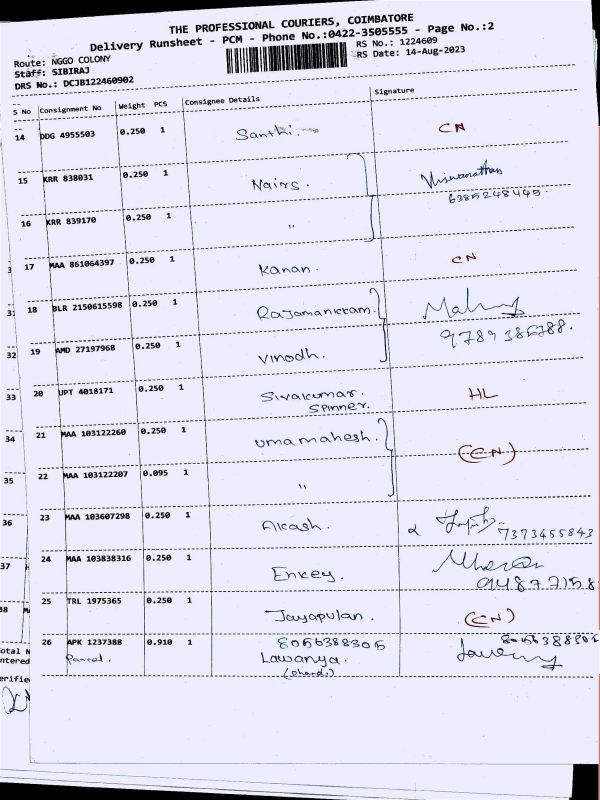 THE PROFESSIONAL COURIERS, COIMBATORE
Delivery Runsheet - PCM - Phone No.:0422-3505555 - Page No.:2
Route: NGGO COLONY
RS No.: 1224609
Staff: SIBIRAJ
RS Date: 14-Aug-2023
DRS No.: DCJB122460902
S No Consignment No Weight PCS Consignee Details Signature
14 DDG 4955503 0.250 1 Santhi. CN
15 KRR 838031 0.250 1 Nairs. Viswanathan
6385248445.
16 KRR 839170 0.250 1 "
17 MAA 861064397 0.250 1 Kanan. CN
18 BLR 2150615598 0.250 1 Rajamanickam.
19 AMD 27197968 0.250 1 Vinodh.
20 UPT 4018171 0.250 1 Sivakumar. HL
Spinner.
21 MAA 103122260 0.250 1 Umamahesh. (CN)
22 MAA 103122207 0.095 1 "
23 MAA 103607298 0.250 1 Akash. 7373455843
24 MAA 103838316 0.250 1 Enkey.
25 TRL 1975365 0.250 1 Jayapulan. (CN)
26 APK 1237388 0.910 1 8056388305 8056388305
Parcel. Lawanya.
31
32
33
34
35
36
37
38